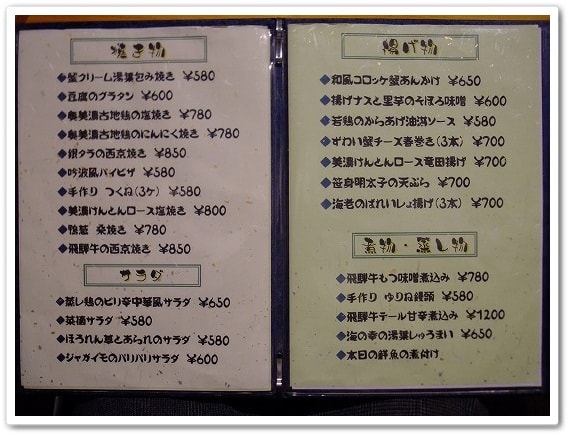 焼き物
◆蟹クリーム湯葉包み焼き ¥580
◆豆腐のグラタン ¥600
◆奥美濃古地鶏の塩焼き ¥780
◆奥美濃古地鶏のにんにく焼き ¥780
◆銀タラの西京焼き ¥850
◆吟波風パイピザ ¥580
◆手作り つくね(3ケ) ¥580
◆美濃けんとんロース塩焼き ¥800
◆鴨葱 朶焼き ¥780
◆飛騨牛の西京焼き ¥850
サラダ
◆蒸し鶏のピリ辛中華風サラダ ¥650
◆菜摘サラダ ¥580
◆ほうれん草とあられのサラダ ¥580
◆ジャガイモのパリパリサラダ ¥600
揚げ物
◆和風コロッケ蟹あんかけ ¥650
◆揚げナスと里芋のそぼろ味噌 ¥600
◆若鶏のからあげ油淋ソース ¥580
◆ずわい蟹チーズ春巻き(3本) ¥700
◆美濃けんとんロース竜田揚げ ¥700
◆笹身明太子の天ぷら ¥700
◆海老のばれいしょ揚げ(3本) ¥700
煮物・蒸し物
◆飛騨牛もつ味噌煮込み ¥780
◆手作り ゆりね饅頭 ¥580
◆飛騨牛テール甘辛煮込み ¥1200
◆海の幸の湯葉しゅうまい ¥650
◆本日の鮮魚の煮付け